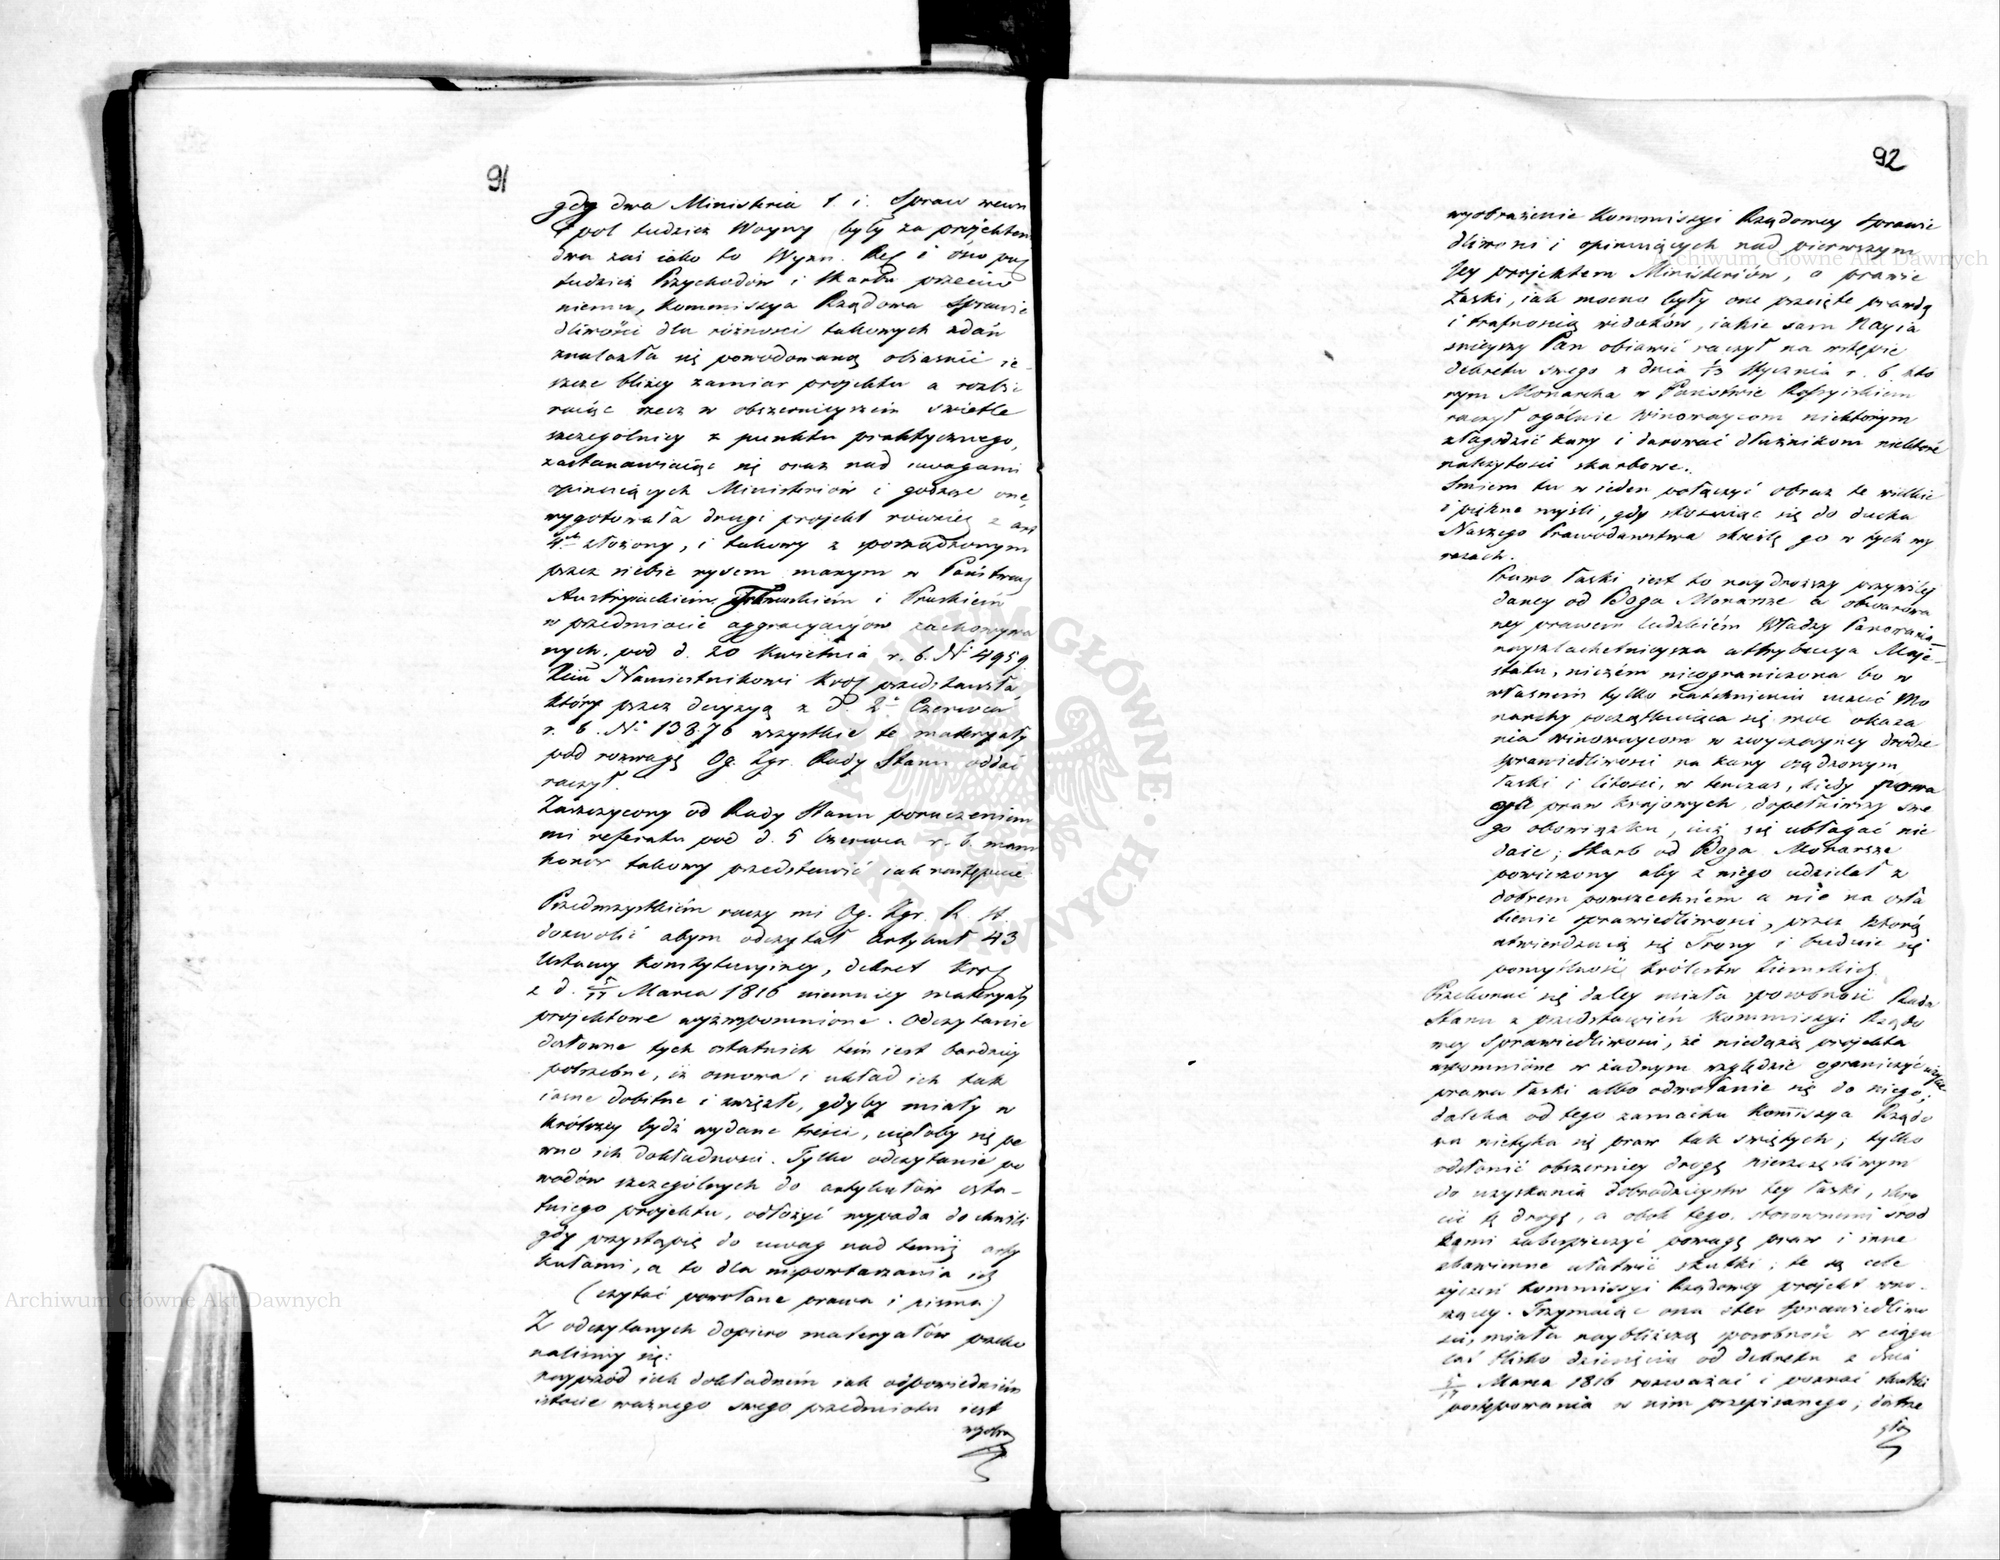 91
gdy dwa Ministeria t. i. Spraw wewn
i pol tudzież Woyny były za projektem
dwa zaś iako to Wyzn. Rel i Ośw pub
tudzież Przychodów i Skarbu przeciw
niemu, Kommissya Rządowa Sprawie
dliwości dla różności takowych zdań
znalazła się powodowaną obiasnić ie
szcze bliżey zamiar projektu a rozbie
raiąc rzecz w obszernieyszém świetle
szczególniey z punktu praktycznego,
zastanawiaiąc się oraz nad uwagami
opiniuiących Ministeriów i godząc one,
wygotowała drugi projekt również z art
4ch złożony, i takowy z sporządzonym
przez siebie rysem znanym w Państwach
Austryackiém i Pruskiém
w przedmiocie aggraciacyiów zachowywa
nych, pod d. 20 Kwietnia r. b. No 4959.
Xciu Namiestnikowi Król przedstawiła
który przez decyzyą z d. 2o Czerwca
r. b. No 13876 wszystkie te materyały
pod rozwagę Og. Zgr. Rady Stanu oddać
raczył.
Zaszczycony od Rady Stanu poruczeniem
mi referatu pod d. 5 Czerwca r. b. mam
honor takowy przedstawić iak następuie
Przedewszystkiém raczy mi Og. Zgr. R. St.
dozwolić abym odczytał artykuł 43
Ustawy Konstytucyiney, dekret Król
z d. 5/17 Marca 1816 niemniey materyały
projektowe wyżwspomnione. Odczytanie
dosłowne tych ostatnich tém iest bardziey
potrzebne, iż osnowa i układ ich tak
iasne dobitne i zwięzłe, gdyby miały w
krótszey bydź wydane treści, uięłoby się pe
wno ich dokładności. Tylko odczytanie po
wodów szczególnych do artykułów osta-
tniego projektu, odłożyć wypada do chwili
gdy przystąpię do uwag nad temiż arty
kułami, a to dla niepowtarzania ich
(czytać powołane prawa i pisma)
Z odczytanych dopiero materyałów przeko
naliśmy się:
naypród iak dokładném iak odpowiedniém
istocie ważnego swego przedmiotu iest
wyobra
92
wyobrażenie Kommissyi Rządowey Sprawie
dliwości i opiniuiących nad pierwszym
Jey projektem Ministeriów, o prawie
łaski, iak mocno były one przeięte prawdą
i trafnością widoków, iakie sam Nayia
śnieyszy Pan obiawić raczył na wstępie
dekretu swego z dnia 1/13 Stycznia r. b. któ
rym Monarcha w Państwie Rossyiskiem
raczył ogólnie winowaycom niektórym
złagodzić kary i darować dłużnikom niektóre
należytości skarbowe.
Śmiem tu w ieden połączyć obraz te wielkie
i piękne myśli, gdy stosuiąc się do ducha
Naszego Prawodawstwa skreślę go w tych wy
razach.
Prawo łaski iest to naydroższy przywiley
daney od Boga Monarsze a obwarowa
ney prawem ludzkiém Władzy Panowania
nayszlachetnieysza attrybucya Maje-
statu, niczém nieograniczona bo w
własném tylko natchnieniu uczuć Mo
narchy początkuiąca się moc okaza
nia winowaycom w zwyczayney drodze
sprawiedliwości na kary osądzonym
łaski i litości, w tenczas, kiedy powa
ga praw kraiowych, dopełniwszy swe
go obowiązku, iuż się ubłagać nie
daie; Skarb od Boga Monarsze
powierzony aby z niego udzielał z
dobrem powszechném a nie na osła
bienie sprawiedliwości, przez którą
utwierdzaią się Trony i buduie się
pomyślność Królestw Ziemskich.
Przekonać się daley miała sposobność Rada
Stanu z przedstawień Kommissyi Rządo
wey Sprawiedliwości, że niedążą projekta
wspomnione w żadnym względzie ograniczyć użycie
prawa łaski albo odwołanie się do niego;
daleka od tego zamachu Komissya Rządo
wa nietyka się praw tak świętych; tylko
odsłonić obszerniey drogę nieszczęśliwym
do uzyskania dobrodzieystw tey łaski, skró
cić tę drogę, a obok tego stosownemi środ
kami zabezpieczyć powagę praw i inne
zbawienne ułatwić skutki; te są cele
życzeń Kommissyi Rządowey projekt wno
szącey. Trzymaiąc ona ster Sprawiedliwo
ści, miała naybliższą sposobność w ciągu
lat blisko dziesięciu od dekretu z dnia
5/17 Marca 1816 rozważać i poznać skutki
postępowania w nim przepisanego;